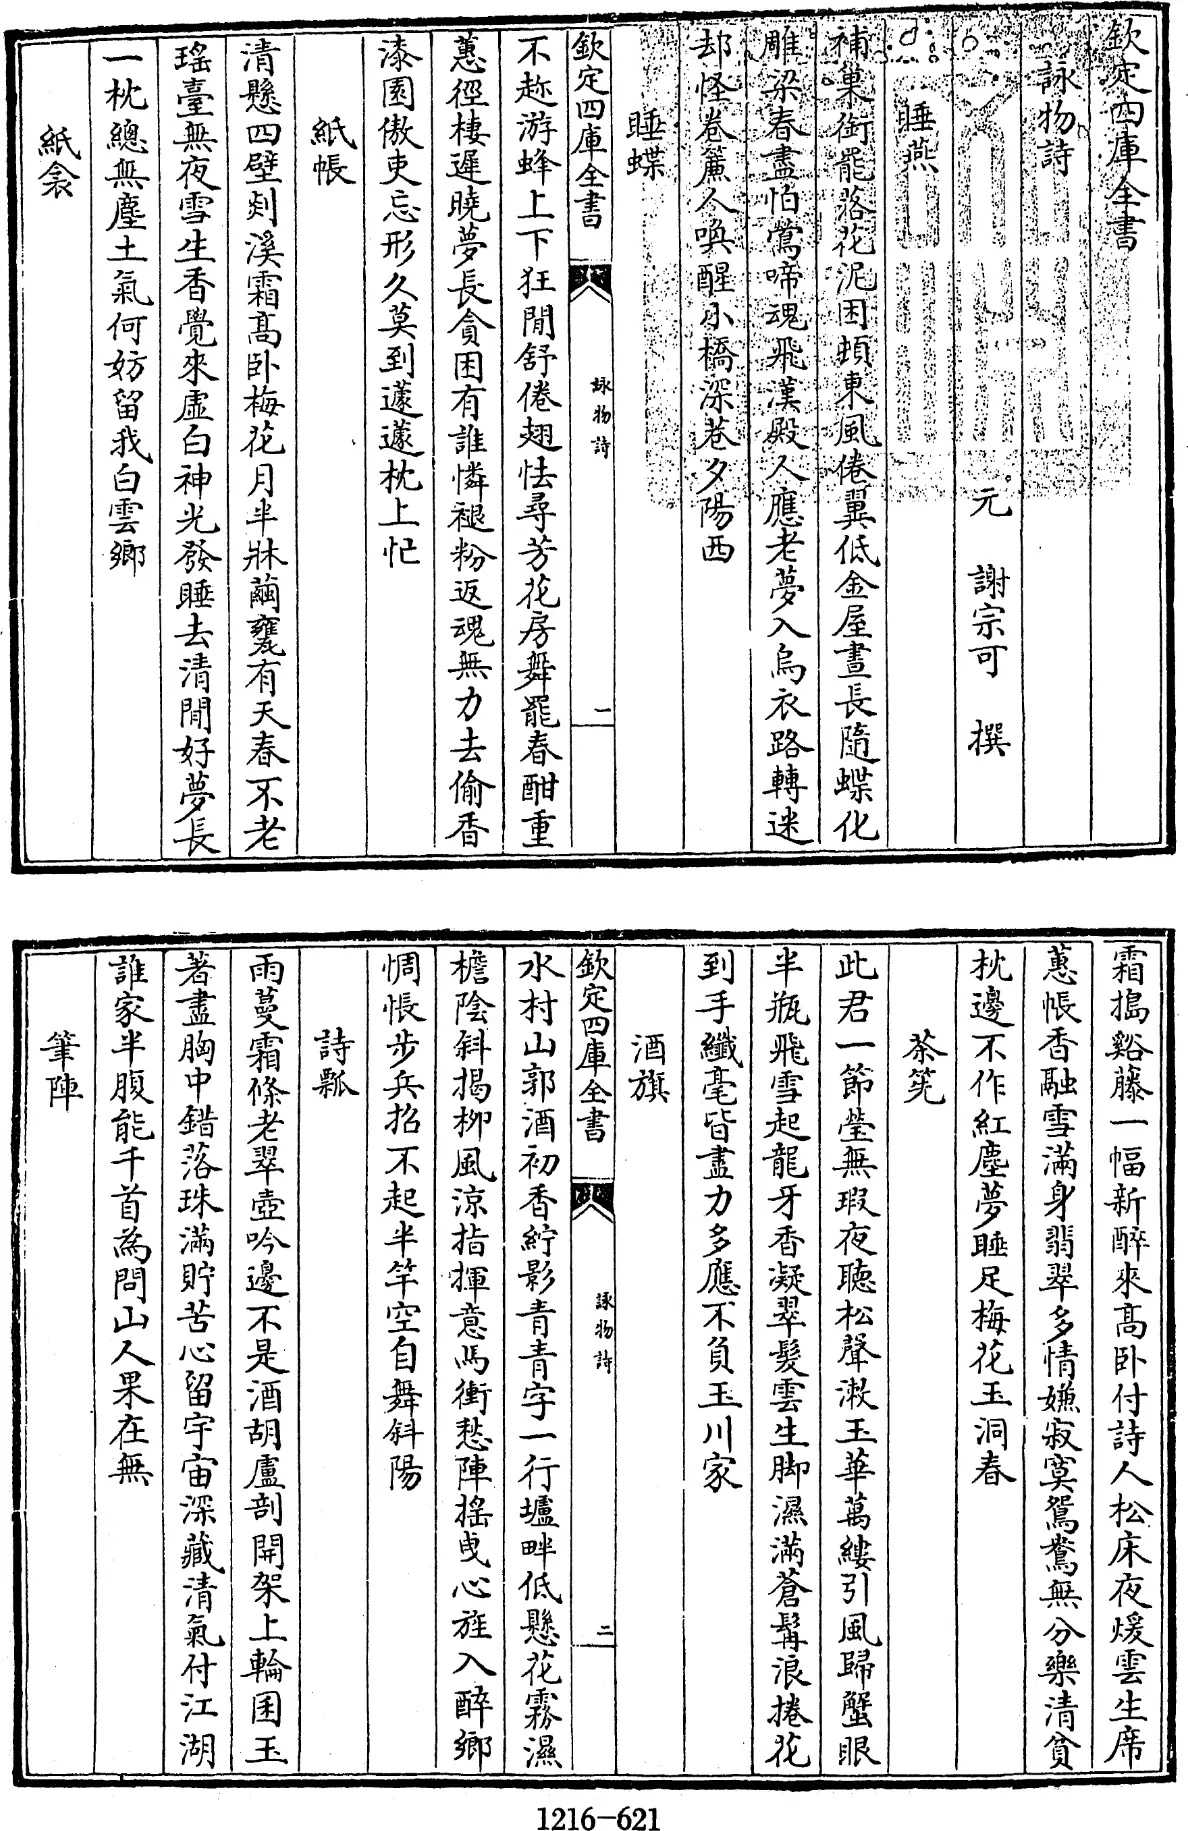 欽定四庫全書
詠物詩
元　謝宗可　撰
睡燕
補巢銜罷落花泥困頓東風倦翼低金屋晝長隨蝶化
雕梁春盡怕鶯啼魂飛漢殿人應老夢入烏衣路轉迷
却怪卷簾人喚醒小橋深巷夕陽西
睡蝶
欽定四庫全書
詠物詩
一
不趂游蜂上下狂閒舒倦翅怯尋芳花房舞罷春酣重
蕙徑棲遲曉夢長貪困有誰憐褪粉返魂無力去偷香
漆園傲吏忘形久莫到蘧蘧枕上忙
紙帳
清懸四壁剡溪霜高卧梅花月半牀繭甕有天春不老
瑤臺無夜雪生香覺來虛白神光發睡去清閒好夢長
一枕總無塵土氣何妨留我白雲鄉
紙衾
霜搗谿藤一幅新醉來高卧付詩人松床夜煖雲生席
蕙帳香融雪滿身翡翠多情嫌寂寞鴛鴦無分樂清貧
枕邊不作紅塵夢睡足梅花玉洞春
茶筅
此君一節瑩無瑕夜聴松聲漱玉華萬縷引風歸蟹眼
半瓶飛雪起龍牙香凝翠髮雲生脚濕滿蒼髯浪捲花
到手纖毫皆盡力多應不負玉川家
酒旗
欽定四庫全書
詠物詩
二
水村山郭酒初香紵影青青字一行壚畔低懸花霧濕
檐陰斜揭栁風涼指揮意馬衝愁陣搖曵心旌入醉鄉
惆悵步兵招不起半竿空自舞斜陽
詩瓢
雨蔓霜條老翠壺吟邊不是酒胡盧剖開架上輪囷玉
著盡胸中錯落珠滿貯苦心留宇宙深藏清氣付江湖
誰家半腹能千首為問山人果在無
筆陣
1216-621